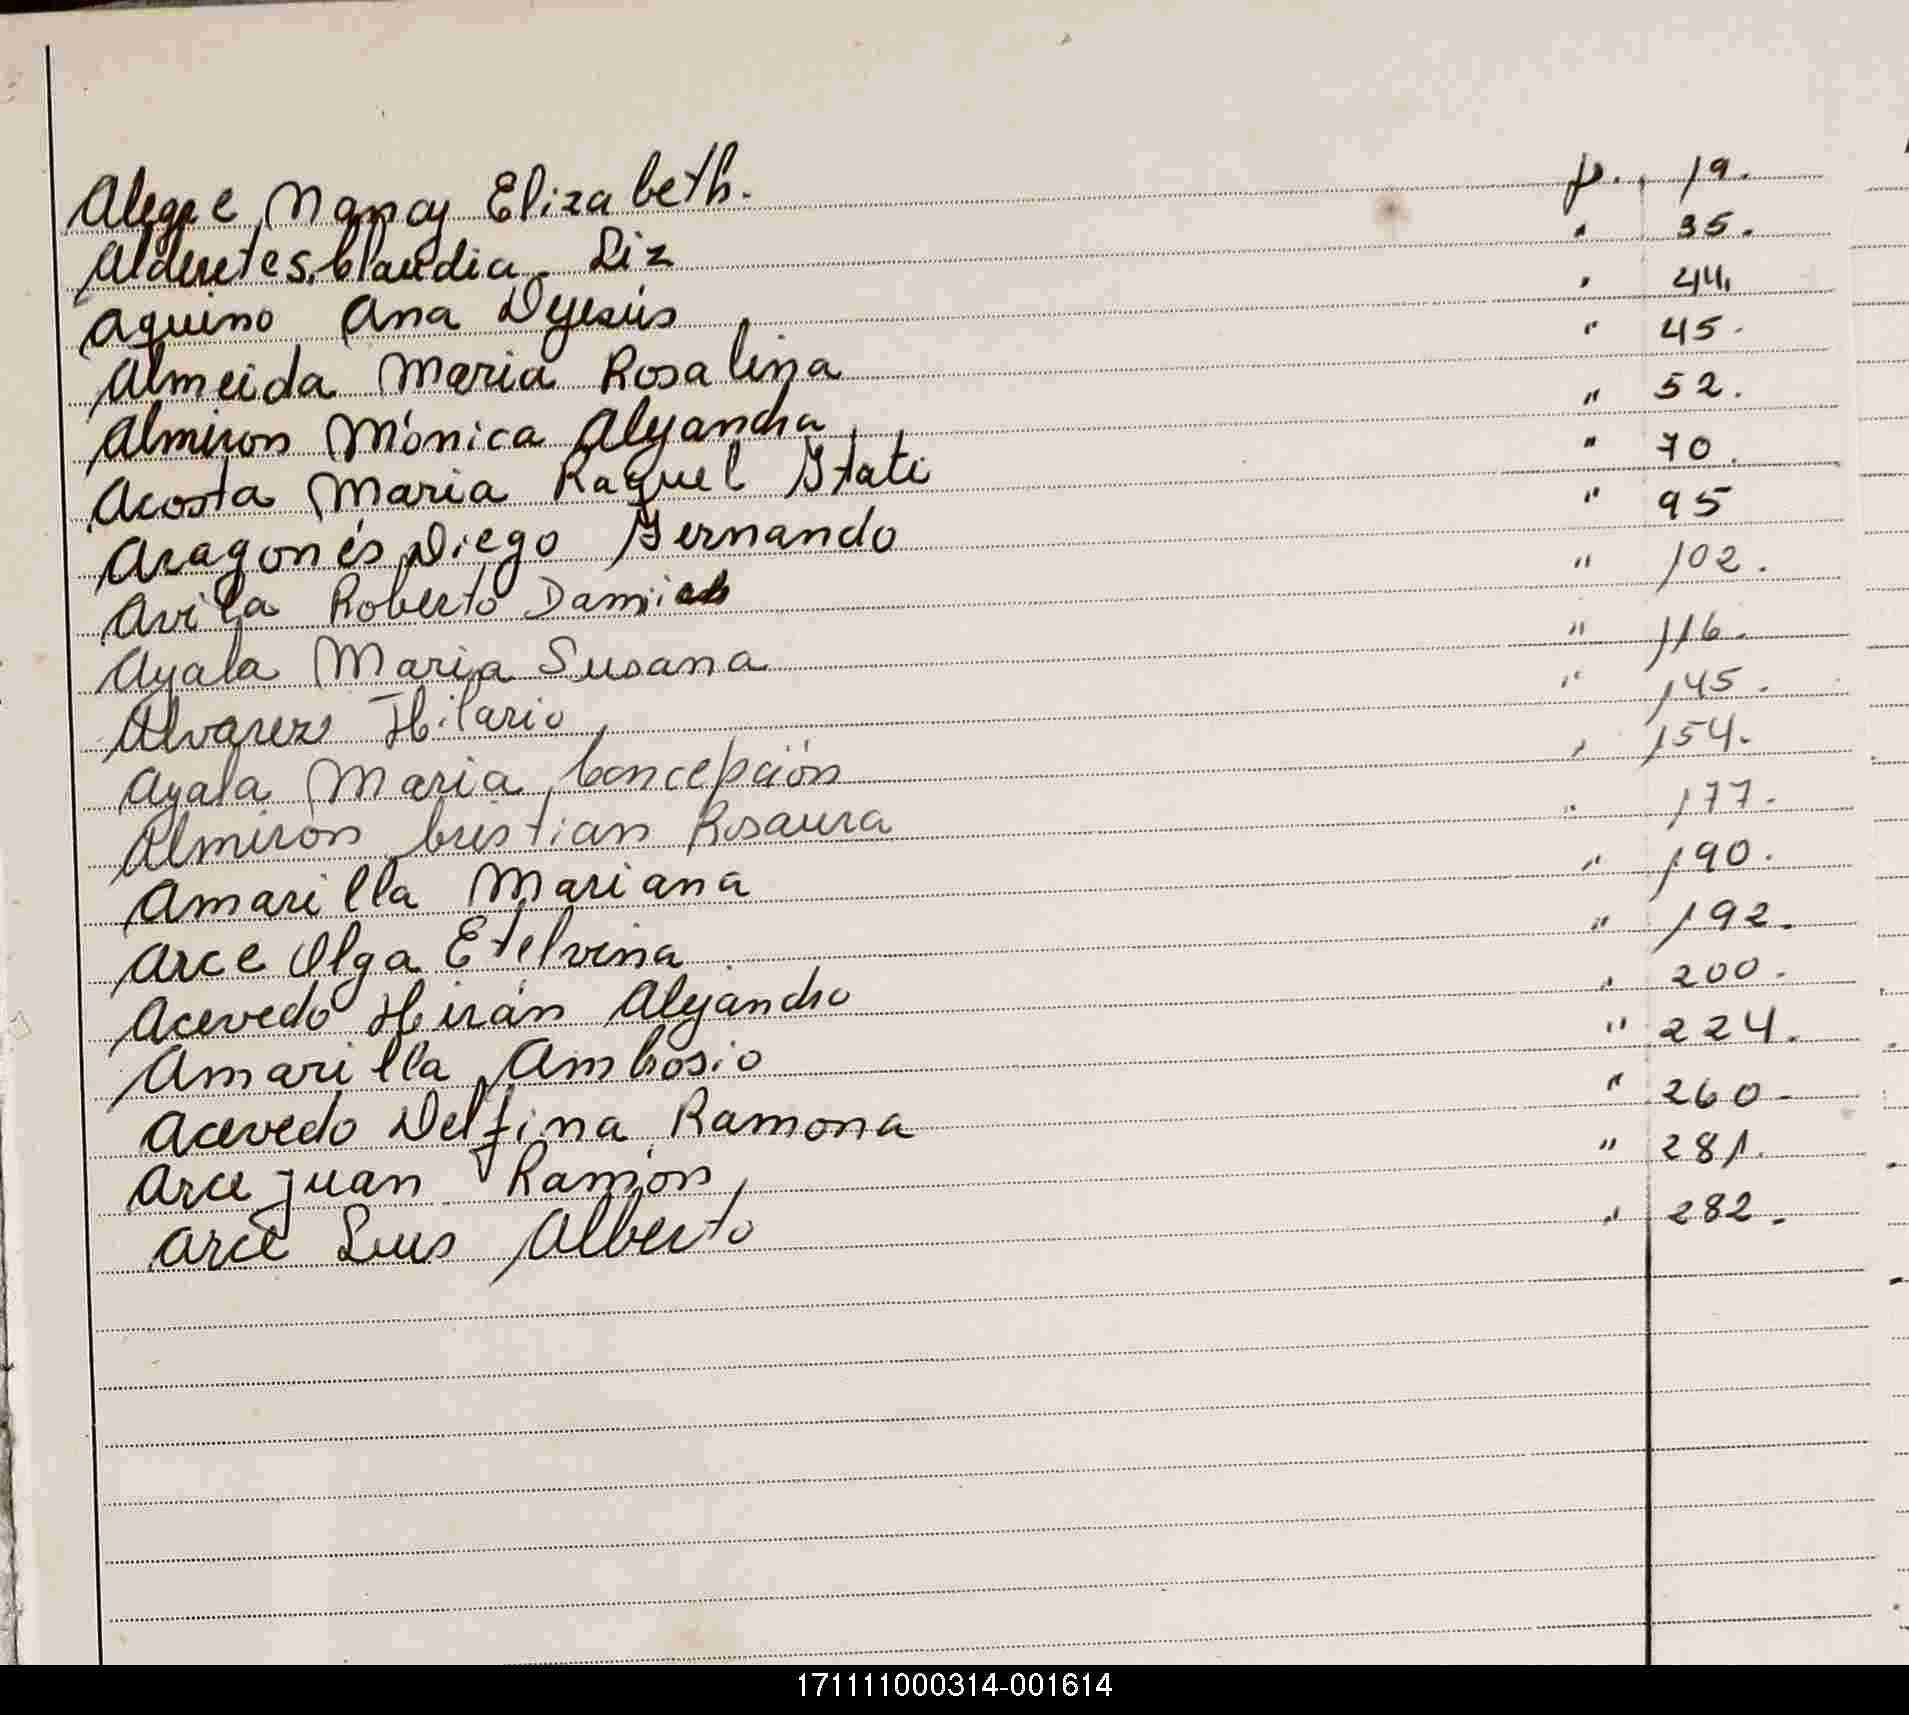 Alegre Nancy Elizabeth. p. 19.
Alderetes Claudia Liz " 35.
Aquino Ana Dejesús " 44.
Almeida Maria Rosalina " 45.
Almiron Mónica Alejandra " 52.
Acosta Maria Raquel Itati " 70.
Aragonés Diego Fernando " 95
Avila Roberto Damian " 102.
Ayala Maria Susana " 116.
Alvarez Hilario " 145.
Ayala Maria Concepción " 154.
Almirón Cristian Rosaura " 177.
Amarilla Mariana " 190.
Arce Olga Etelvina " 192.
Acevedo Hirán Alejandro " 200.
Amarilla Ambrosio " 224.
Acevedo Delfina Ramona " 260-
Arce Juan Ramón " 281.
Arce Luis Alberto " 282.
171111000314-001614